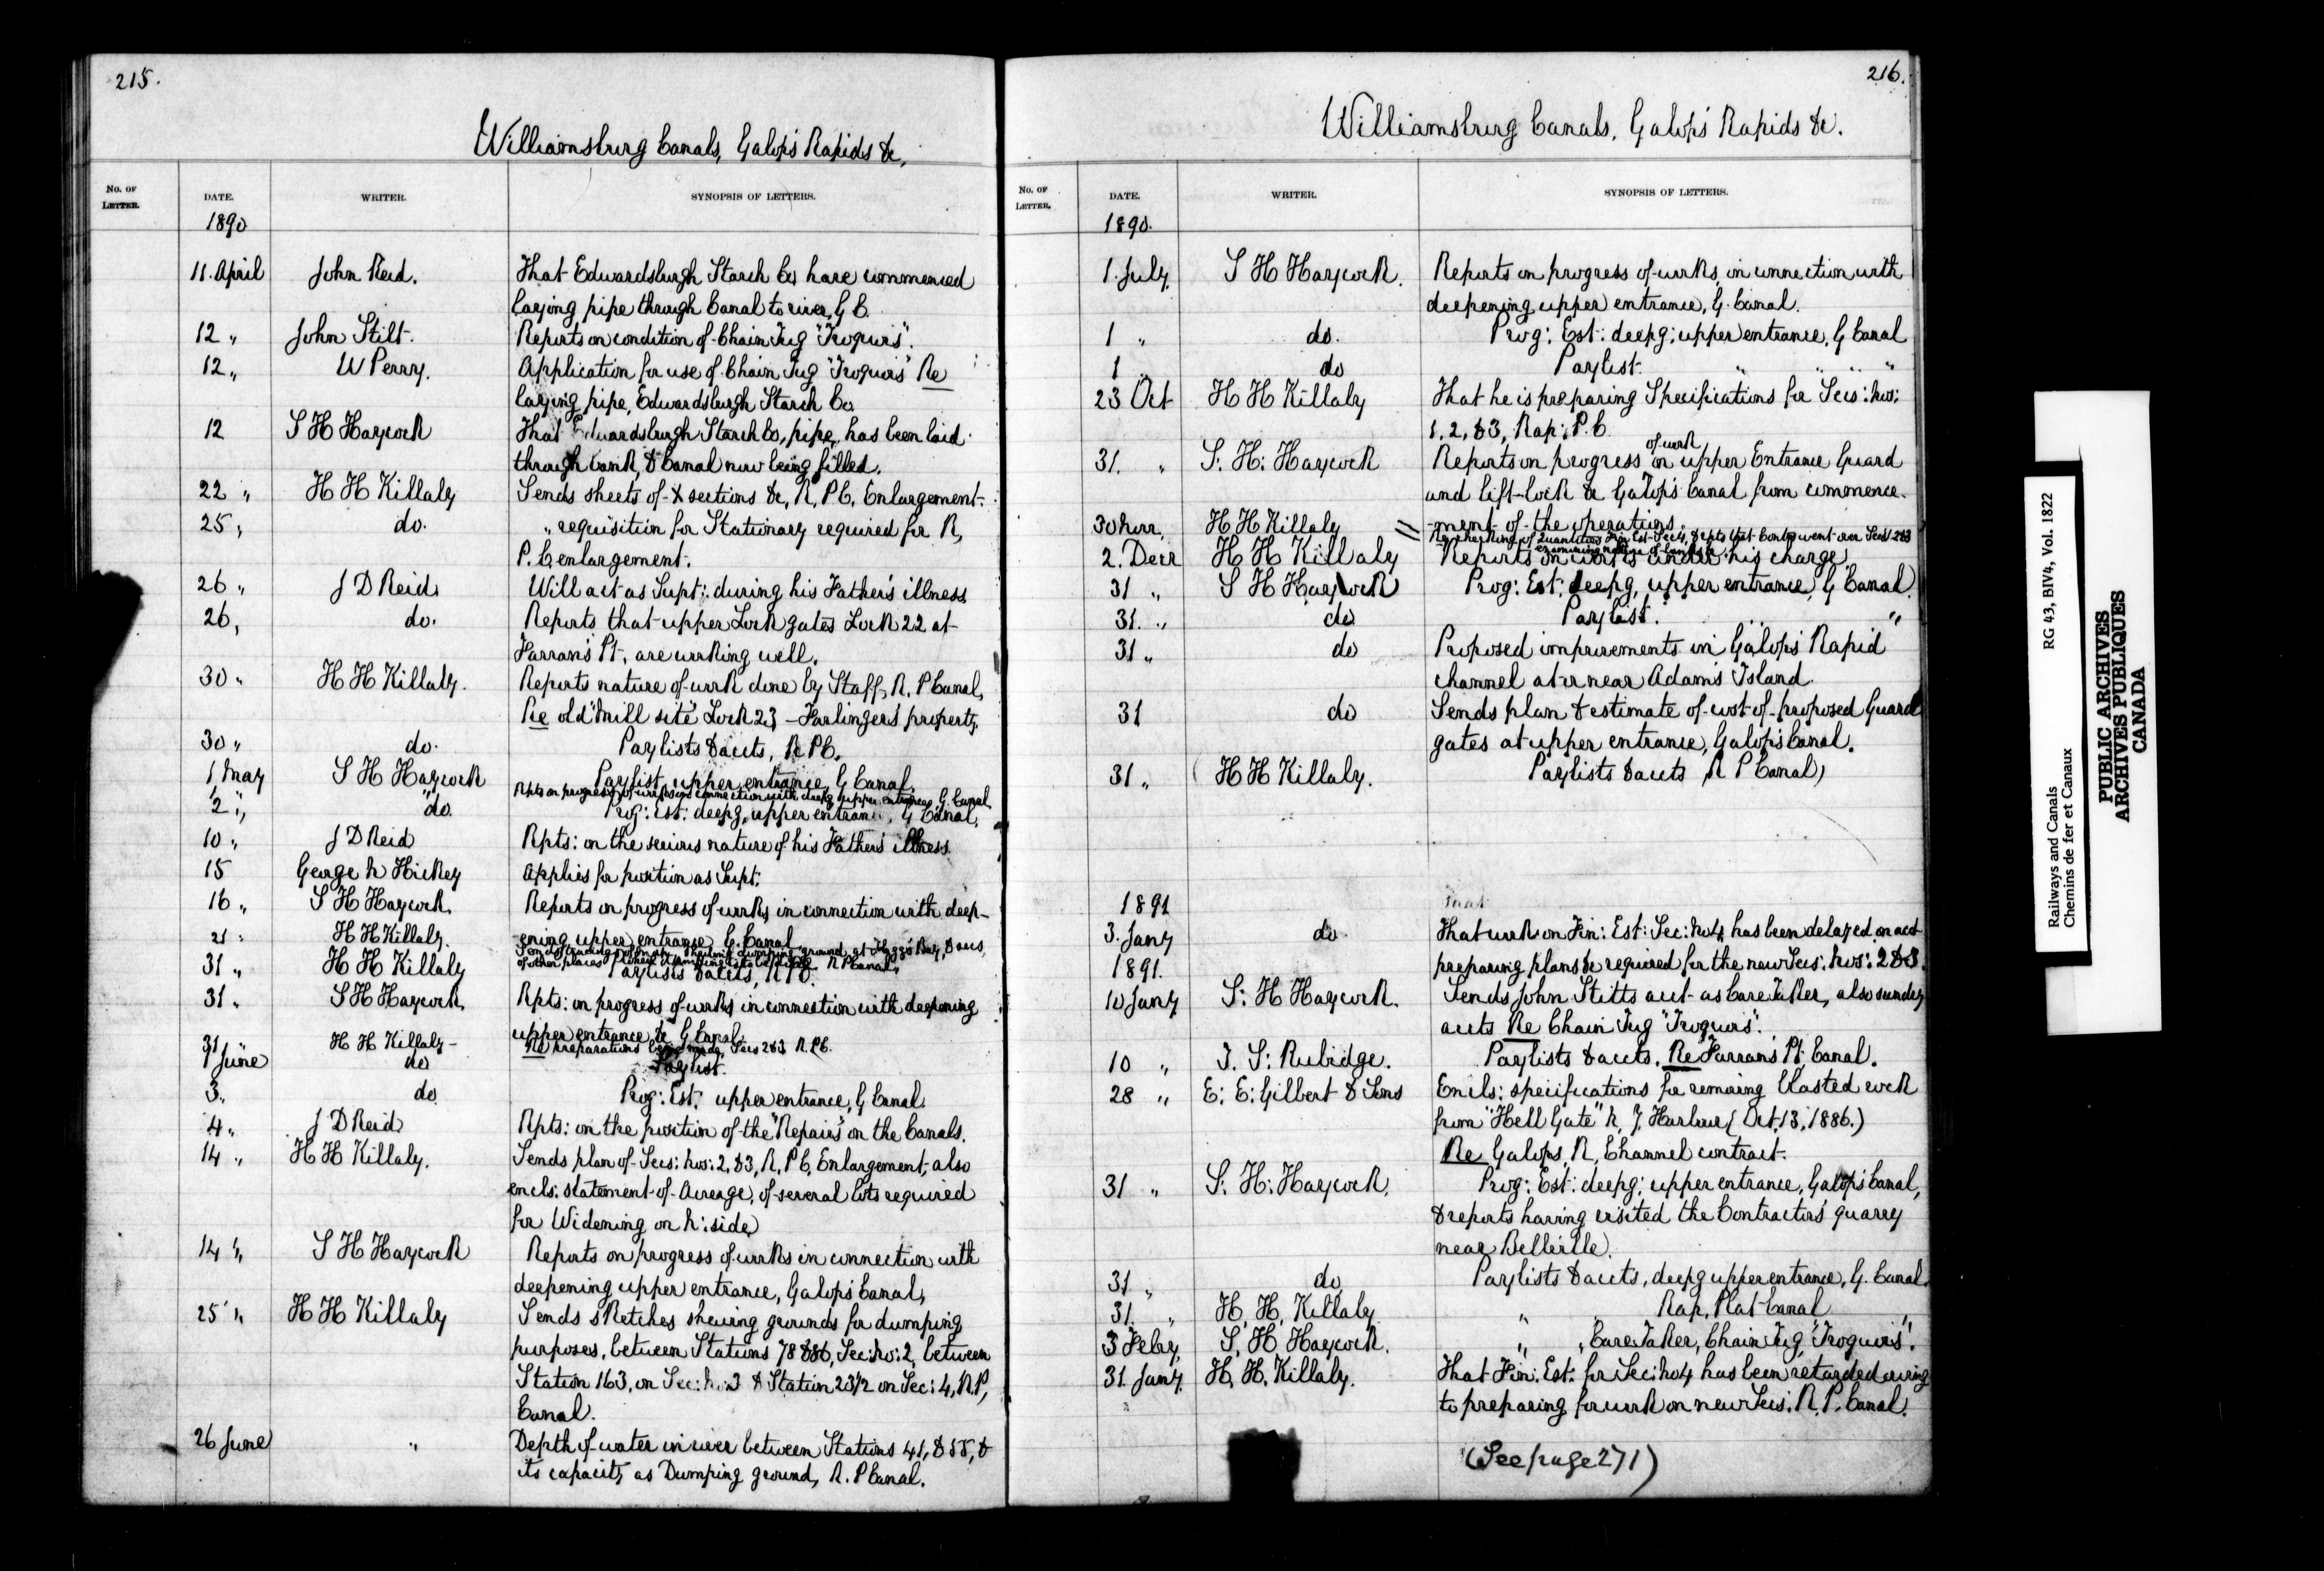 215.
Williamsburg Canals, Galops Rapids &c,
No. OF LETTER.
DATE.
WRITER.
SYNOPSIS OF LETTERS.
1890
11. April John Reid. That Edwardsburgh Starch Co, have commenced
laying pipe through Canal to river, G C.
12 " John Stilt. Reports on condition of Chain Tug "Iroquois".
12 " W Perry. Application for use of Chain Tug "Iroquois" Re
laying pipe, Edwardsburgh Starch Co.
12 S H Haycock That Edwardsburgh Starch Co, pipe, has been laid
through bank, & Canal now being filled.
22 " H H Killaly Sends sheets of X sections &c, R, P C, Enlargement.
25 " do. " requisition for Stationary required for R,
P. C, enlargement.
26 " J D Reid Will act as Supt: during his Father's illness.
26, do. Reports that upper Lock gates Lock 22 at
Farran's Pt, are working well.
30 " H H Killaly. Reports nature of work done by Staff, R. P Canal,
Re old "Mill site" Lock 23 - Farlinger's property.
30 " do. Paylists & accts, R P C.
1 May S H Haycock Paylist, upper entrance, G Canal.
Rpts on progress of works in connection with deepg upper entrance, G. Canal
2 " do. Prog: Est: deepg, upper entrance, G Canal,
10 " J D Reid Rpts: on the serious nature of his Father's illness.
15 George N Hickey Applies for position as Supt:
16 " S H Haycock. Reports on progress of works in connection with deep-
ening upper entrance G. Canal
21 " H H Killaly. Sends tracings of dumping ground at Bay, & accs
of other places R P Canal.
31 " H H Killaly Paylists & accts, R P C.
31 " S H Haycock, Rpts: on progress of works in connection with deepening
upper entrance &c G Canal.
31 " H H Killaly - Re preparations being made, Secs 2 & 3 R. P C.
1 June do Paylist.
3 " do Prog: Est: upper entrance, G Canal.
4 " J D Reid Rpts: on the position of the "Repairs" on the Canals.
14 " H H Killaly. Sends plan of Secs: Nos: 2, & 3, R, P C, Enlargement, also
encls: statement of Acreage, of several lots required
for Widening on N: side
14 " S H Haycock Reports on progress of works in connection with
deepening upper entrance, Galops Canal,
25 " H H Killaly Sends sketches shewing grounds for dumping
purposes, between Stations 78 & 86, Sec: No: 2, between
Station 163, on Sec: No: 3 & Station 23½ on Sec: 4, R. P,
Canal.
26 June " Depth of water in river between Stations 41, & 55, &
its capacity as Dumping ground, R. P Canal.
216.
Williamsburg Canals, Galops Rapids &c.
No. OF LETTER.
DATE.
WRITER.
SYNOPSIS OF LETTERS.
1890.
1. July. S H Haycock. Reports on progress of works, in connection with
deepening upper entrance, G. Canal.
1 " do. Prog: Est: deepg: upper entrance, G Canal
1 " do Paylist. " " " "
23 Oct H H Killaly That he is preparing Specifications for Secs: Nos:
1. 2, & 3, Rap: P. C
31. " S. H: Haycock Reports on progress of work on upper Entrance Guard
and lift-lock &c Galops Canal from commence-
ment of the operations.
30 Novr, H H Killaly Re checking of Quantities Fin Est Sec 4, & rpts that Contrs went over Secs 2 & 3
examining nature of lands &c
2. Decr H H Killaly Reports on works under his charge,
31 " S H Haycock Prog: Est: deepg, upper entrance, G Canal.
31. " do Paylist. "
31 " do Proposed improvements in Galops Rapid
channel at or near Adams Island.
31 do Sends plan & estimate of cost of proposed Guard
gates at upper entrance, Galops Canal.
31 " H H Killaly. Paylists & accts R P Canal,
1891
3. Jany do That work on Fin: Est: Sec: No 4, has been delayed on acct
1891. preparing plans &c required for the new Secs: Nos: 2 & 3.
10 Jany S: H Haycock. Sends John Stitts acct as CareTaker, also sundry
accts Re Chain Tug "Iroquois".
10 " T. S: Rubidge. Paylists & accts. Re Farrans Pt: Canal.
28 " E: E: Gilbert & Sons Encls: specifications for removing blasted rock
from "Hell Gate" N, Y. Harbour (Oct, 13, 1886.)
Re Galops, R, Channel contract.
31 " S: H: Haycock. Prog: Est: deepg: upper entrance, Galops Canal,
& reports having visited the Contractors' quarry
near Belleville.
31 " do Paylists & accts, deepg upper entrance, G. Canal.
31 " H, H, Killaly " " Rap, Plat Canal "
3 Feby, S, H Haycock. " " Care Taker, Chain Tug, "Iroquois".
31. Jany. H, H. Killaly. That Fin: Est: for Sec: No 4 has been retarded owing
to preparing for work on new Secs: R. P. Canal.
(See page 271)
Railways and Canals RG 43, BIV4, Vol. 1822
Chemins de fer et Canaux
PUBLIC ARCHIVES
ARCHIVES PUBLIQUES
CANADA